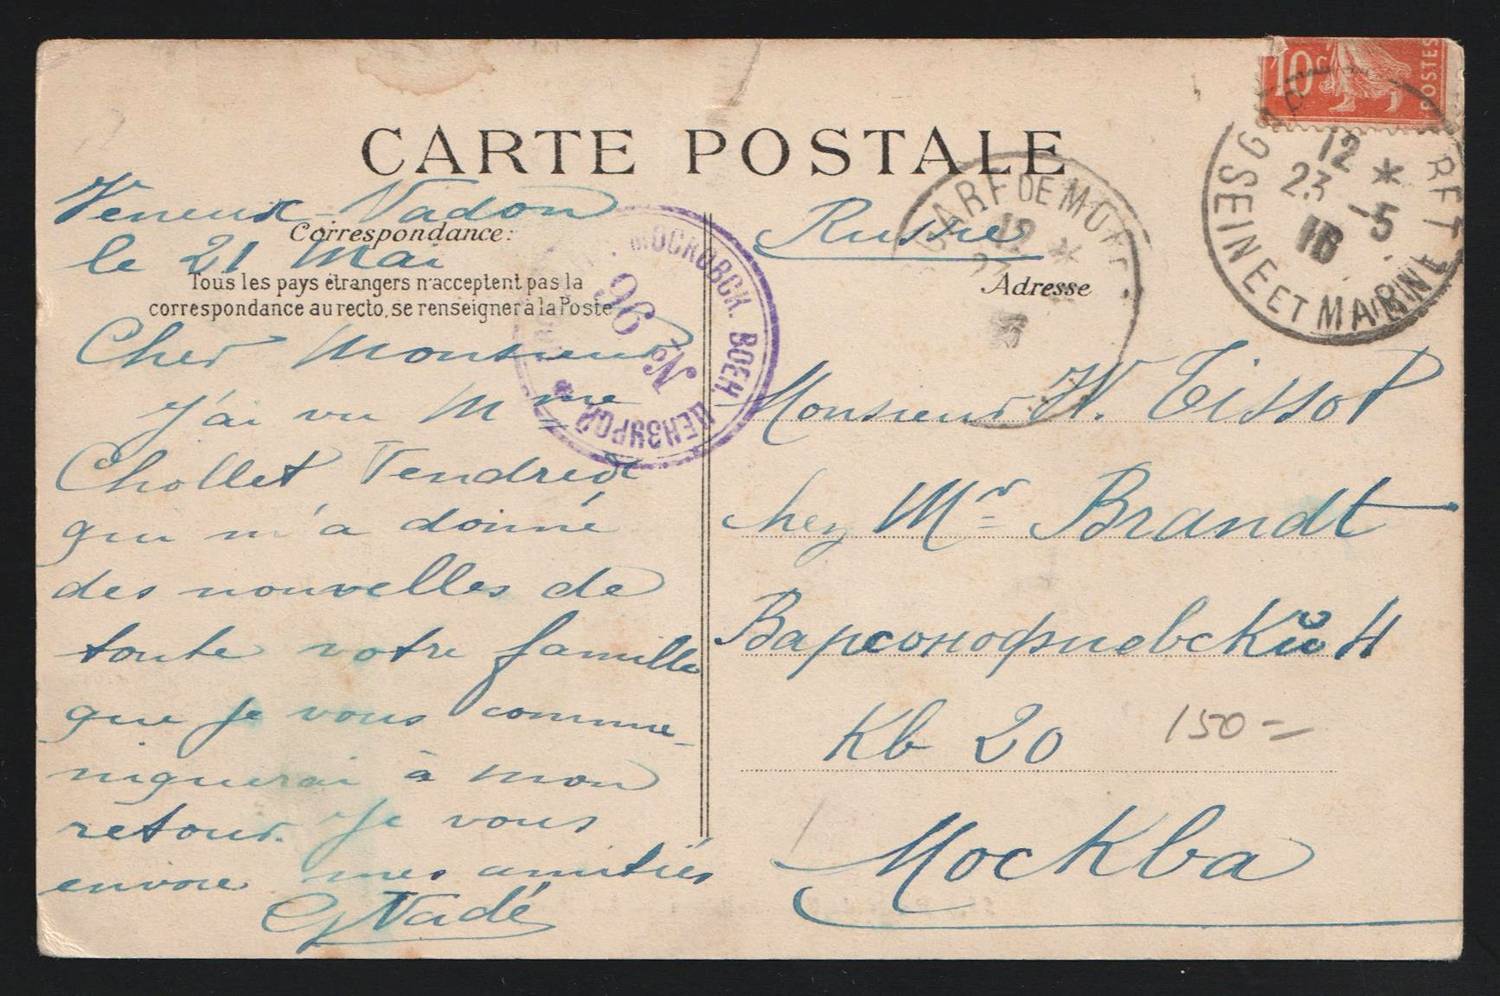 CARTE POSTALE
Correspondance:
Tous les pays étrangers n'acceptent pas la
correspondance au recto, se renseigner à la Poste
Veneux-Nadon
le 21 Mai
Cher Monsieur
J'ai vu Mme
Chollet Vendredi
qui m'a donné
des nouvelles de
toute votre famille
que je vous commu-
niquerai à mon
retour. Je vous
envoie mes amitiés
Nadé
Russie
Adresse
Monsieur W. Tissot
chez Mr Brandt
Варсонофиевский
Кв 20
150=
Москва
10c
POSTES
12 *
23 -5
16
SEINE ET MARNE
GARE DE MORET
12 *
МОСКОВСК. ВОЕН. ЦЕНЗУРОЙ *
№ 96